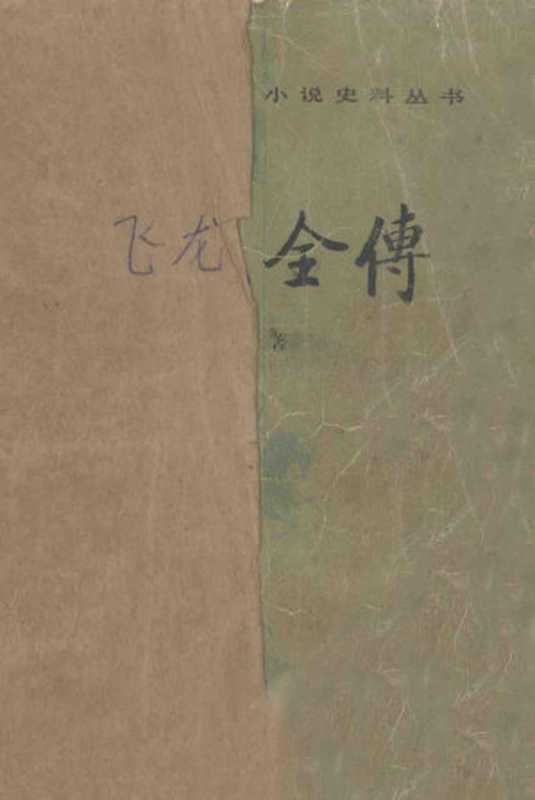 小说史料丛书
飞龙全傳
著